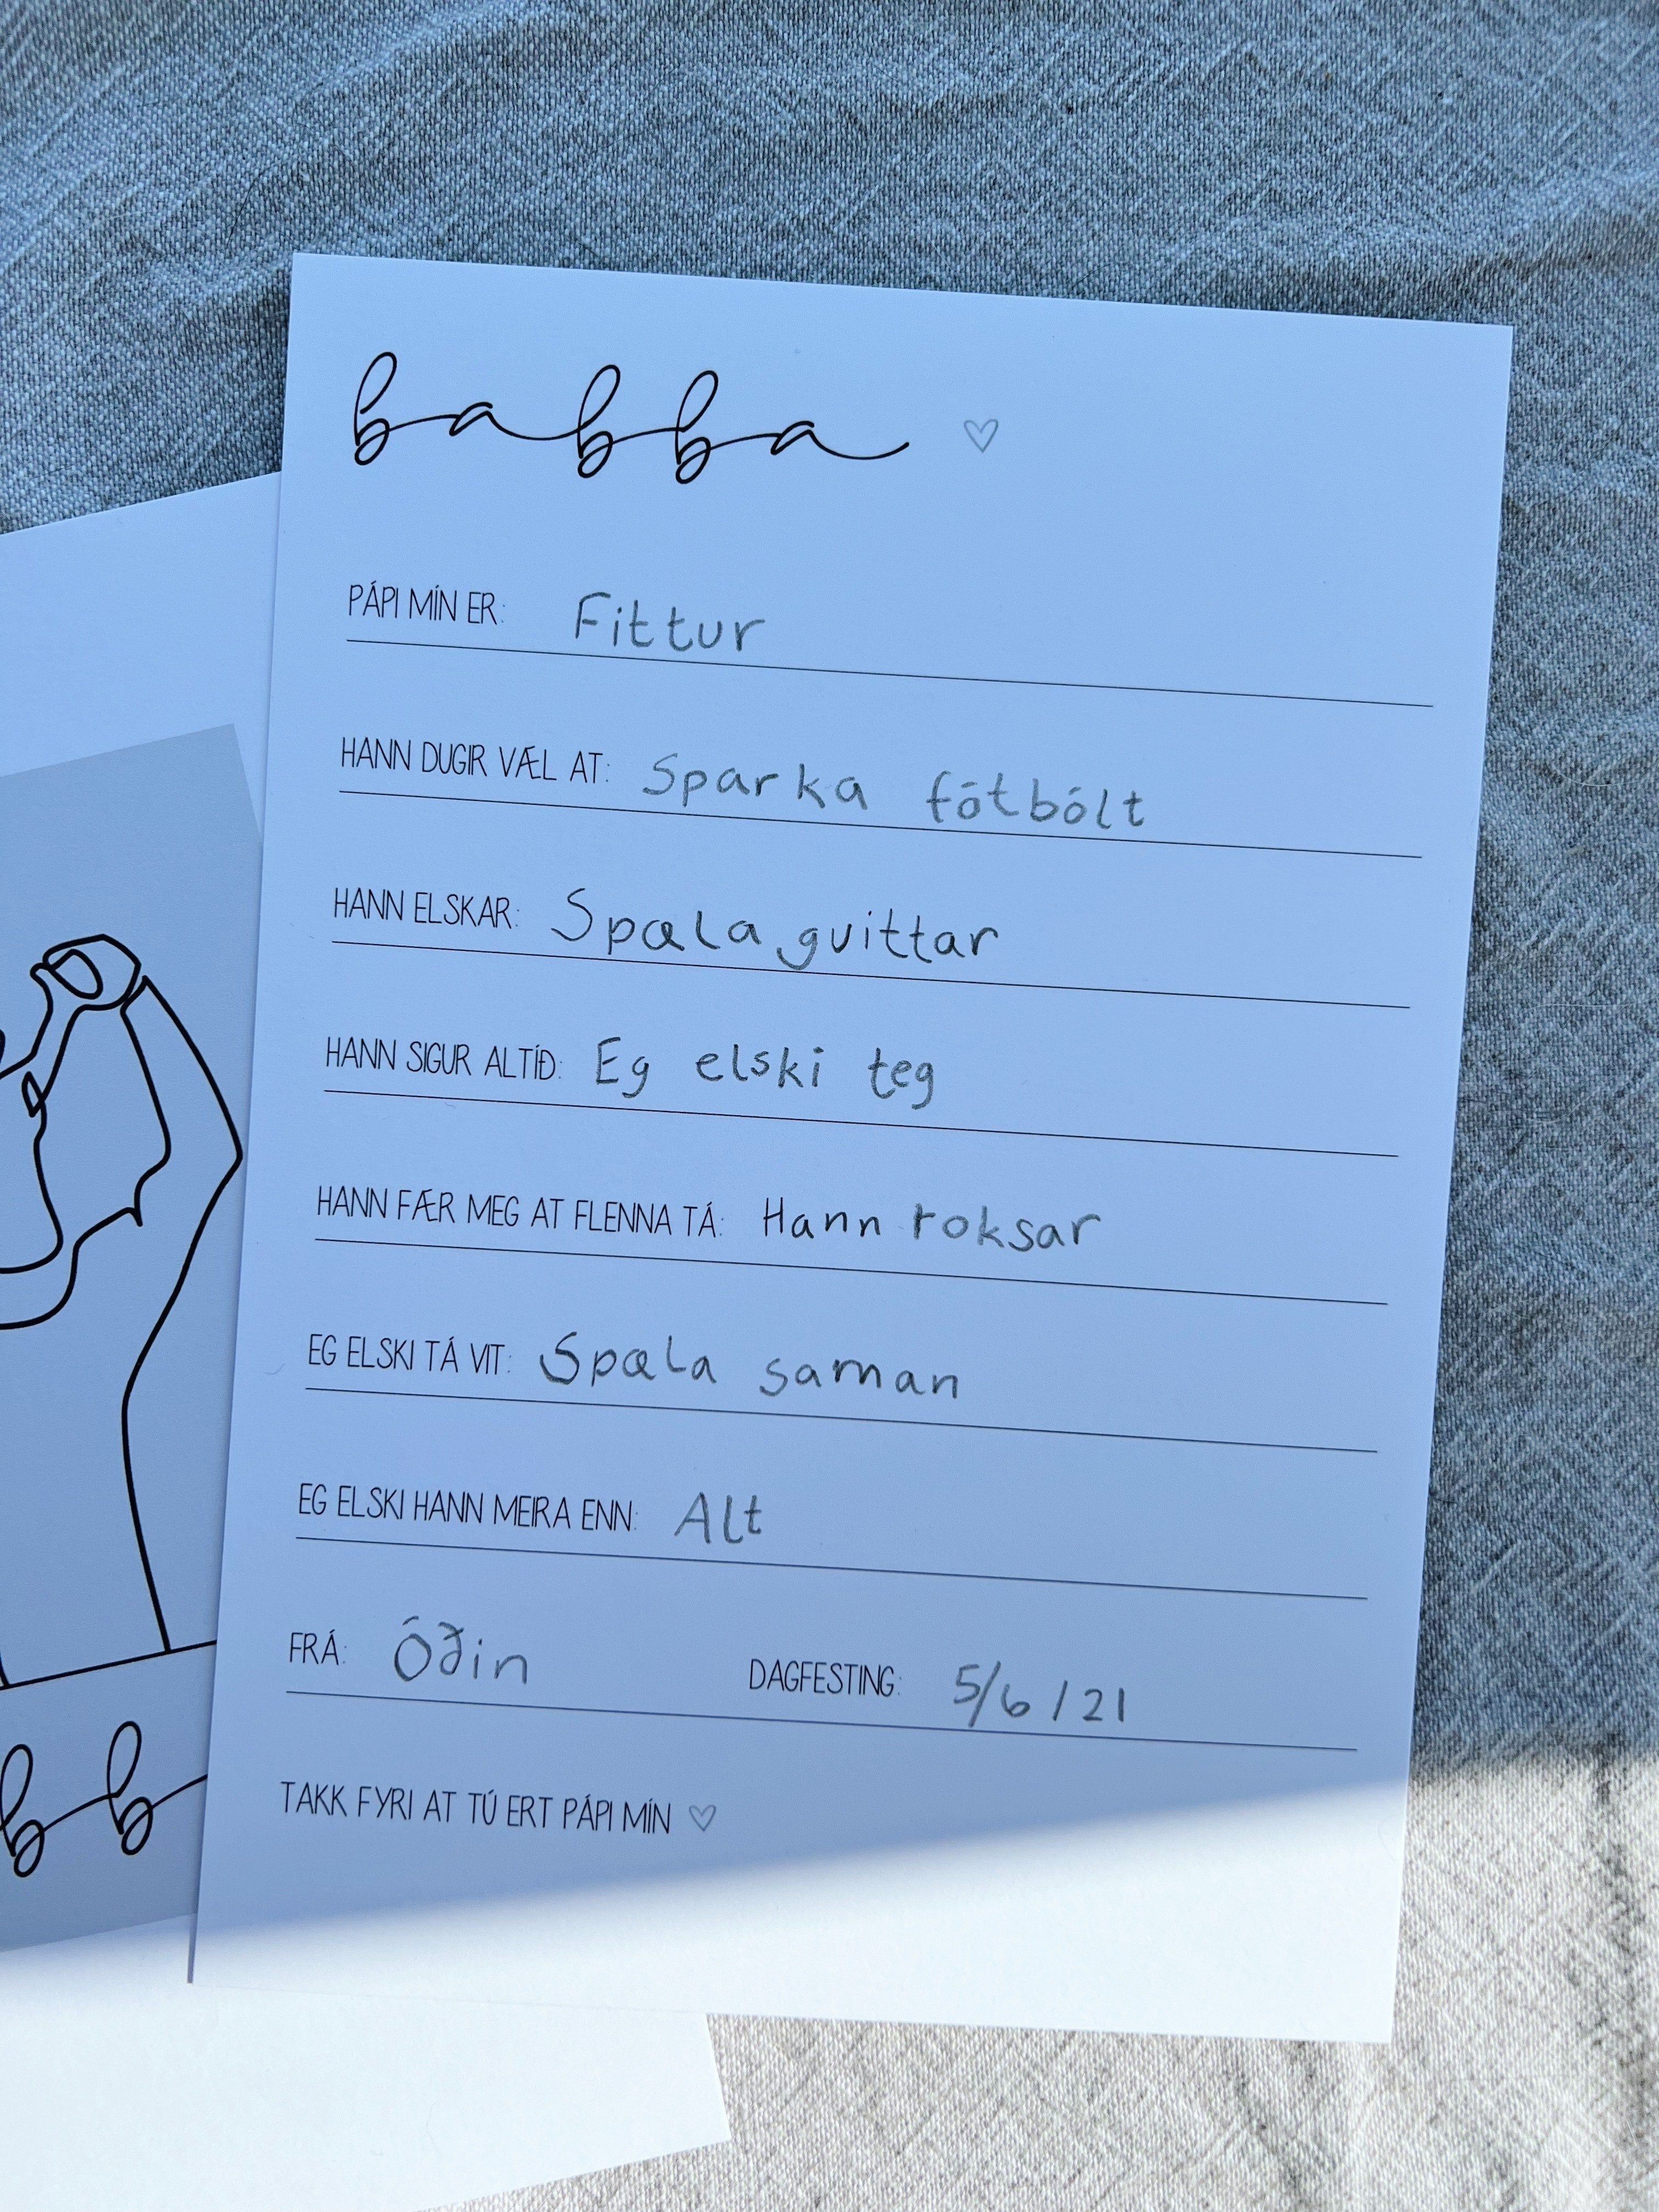 babba ♡
PÁPI MÍN ER: Fittur
HANN DUGIR VÆL AT: Sparka fótbólt
HANN ELSKAR: Spæla guittar
HANN SIGUR ALTÍÐ: Eg elski teg
HANN FÆR MEG AT FLENNA TÁ: Hann roksar
EG ELSKI TÁ VIT: Spæla saman
EG ELSKI HANN MEIRA ENN: Alt
FRÁ: Óðin DAGFESTING: 5/6/21
TAKK FYRI AT TÚ ERT PÁPI MÍN ♡
bb